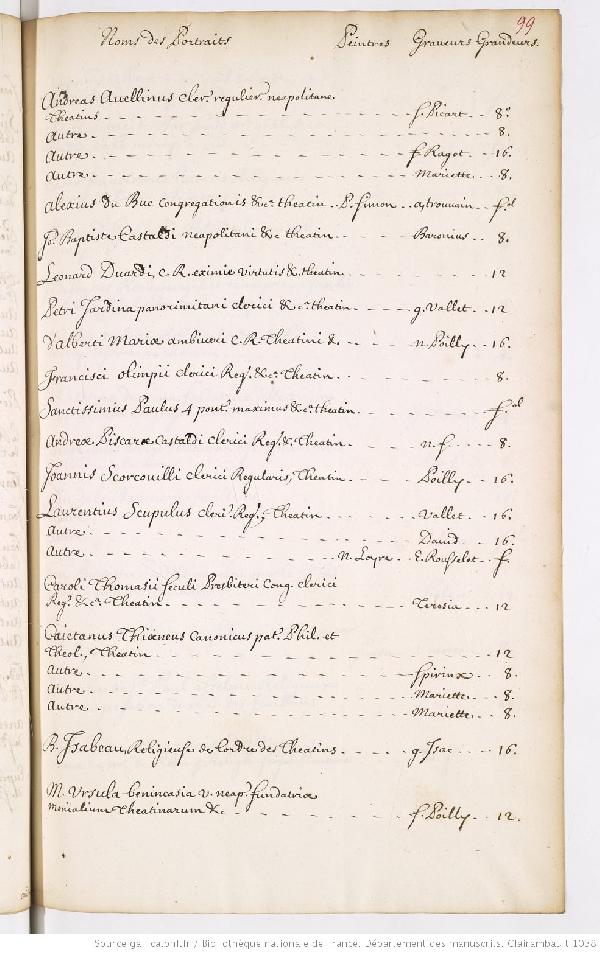 99
Noms des Portraits Peintres Graveurs Grandeurs.
Andreas Auellinus cler. regulier. neapolitane.
Theatins - - - f. Picart - - 8°
Autre - - - 8.
Autre - - - f. Ragot - - 16.
Autre - - - Mariette - - 8.
Alexius du Buc congregationis &c. theatin - - P. Simon - -
Jo. Baptiste Castaldi neapolitani &c theatin - - - Baronius - - 8.
Leonard Duardi, c. R. eximie virtutis &. theatin - - - 12
Petri Jardina panormitani clerici &c. theatin - - - g. Vallet - - 12
D'alberti Mariæ ambiueri C. R. Theatini &. - - - n. Poilly - - 16.
Francisci olimpii clerici Reg. &c. Theatin - - - 8.
Sanctissimus Paulus 4 pont. maximus &c theatin - - - fol
Andreæ Piscaræ Castaldi clerici Reg. &. Theatin - - - n. f. - - 8.
Joannis Scorcouilli clerici Regularis, Theatin - - - Poilly - - 16.
Laurentius Scupulus cleri. Reg., Theatin - - - Vallet - - 16.
Autre - - - Dauid - - 16.
Autre - - - N. Loyre - - E. Rousselet - - f.
Caroli Thomasii seculi Presbiteri Cong. clerici
Reg. &c. Theatin - - - Teresia - - 12
Caietanus Thiæneus Canonicus pat. Phil. et
Theol., Theatin - - - 12
Autre - - - Spirinx - - 8.
Autre - - - Mariette - - 8.
Autre - - - Mariette - - 8.
B. Isabeau, Religieuse de l'ordre des Theatins - - - g. Isac - - 16.
M. Vrsula benincasia v. neap. fundatrix
monialium Theatinarum &c - - - f. Poilly - - 12.
Source gallica.bnf.fr / Bibliothèque nationale de France. Département des manuscrits. Clairambault 1038